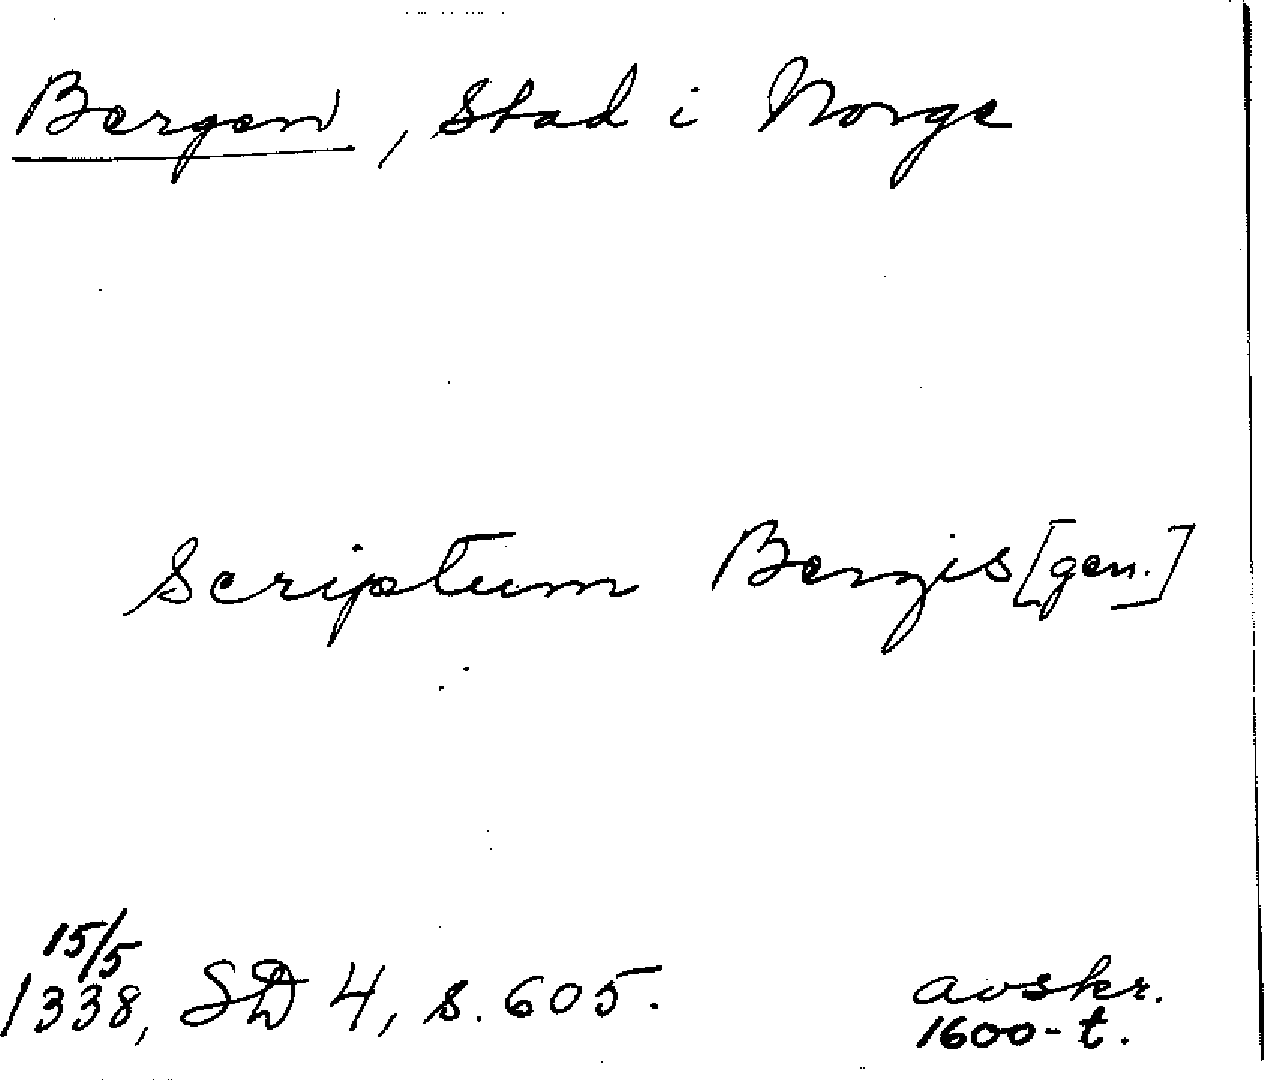 Bergen, Stad i Norge
Scriptum Bergis [gen.]
15/5
1338, SD 4, s. 605.
avskr.
1600-t.